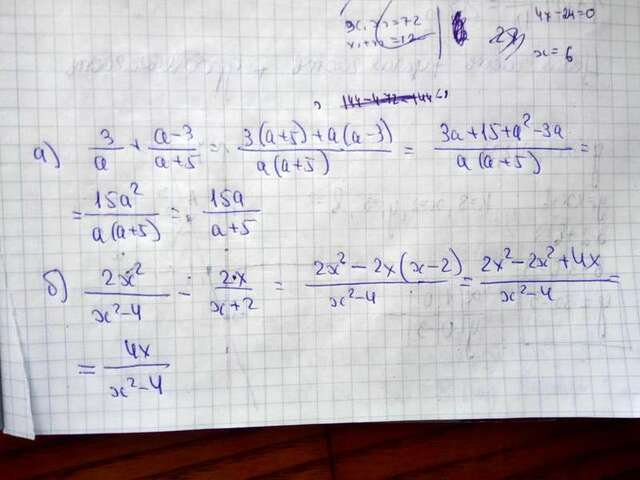 а) 3/a + (a-3)/(a+5) = (3(a+5)+a(a-3))/(a(a+5)) = (3a+15+a²-3a)/(a(a+5)) =
= 15a²/(a(a+5)) = 15a/(a+5)
б) 2x²/(x²-4) - 2x/(x+2) = (2x²-2x(x-2))/(x²-4) = (2x²-2x²+4x)/(x²-4) =
= 4x/(x²-4)
4x-24=0
x=6